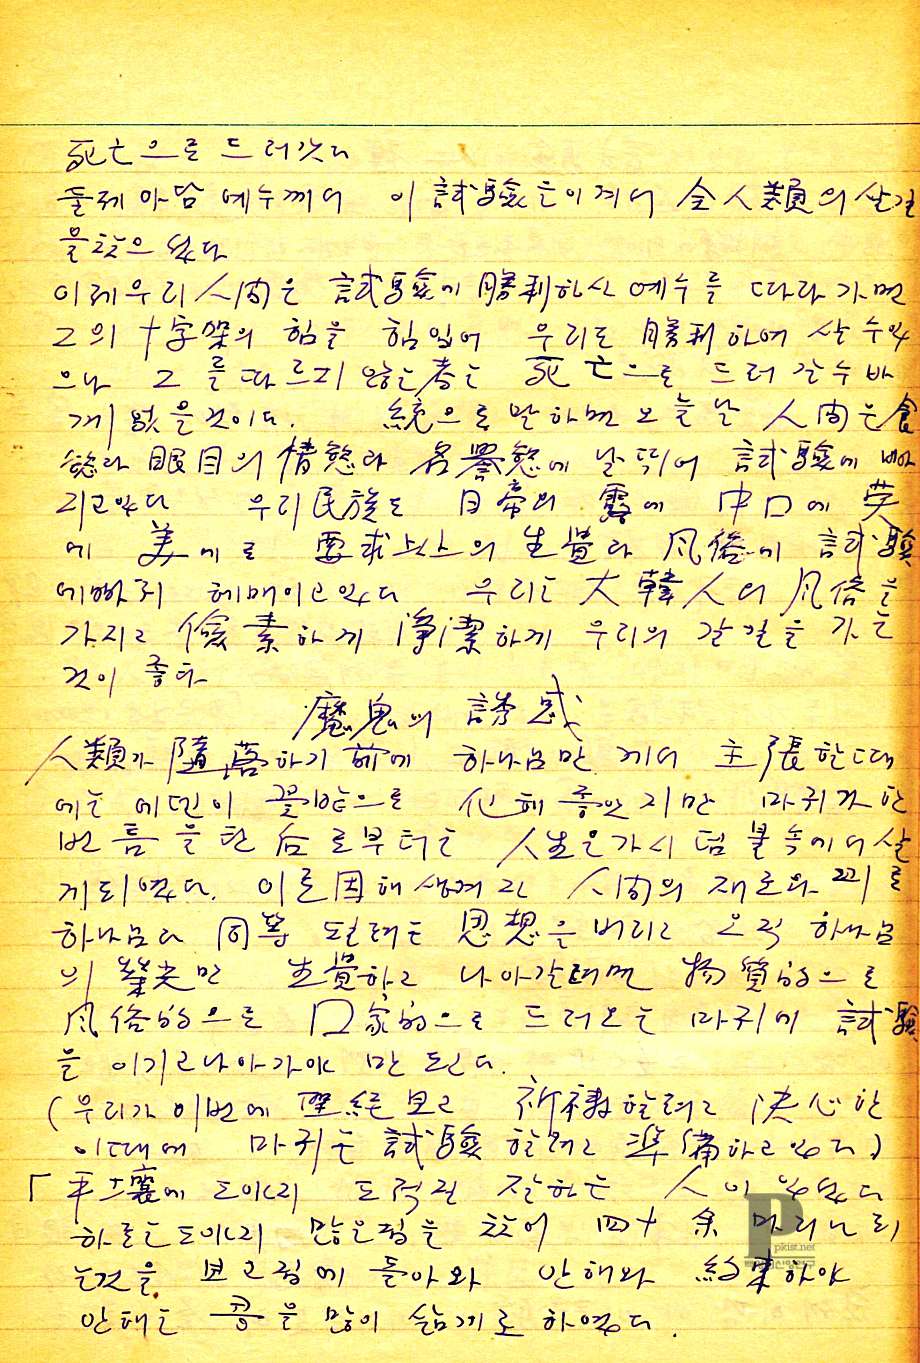 死亡으로 드러갓다
둘제 아담 예수께서 이 試驗을 이게서 全人類의 살길
을 찾으셨다
이제 우리 人間은 試驗에 勝利하신 예수를 따라가면
그의 十字架의 힘을 힘입어 우리도 勝利하여 살 수 있
으나 그를 따르지 않는 者는 死亡으로 드러갈 수 바
게 없을 것이다. 統으로 말하면 오늘날 人間은 食
慾과 眼目의 情慾과 名譽慾에 날뛰어 試驗에 빠
지고 있다 우리 民族도 日帝의 露에 中口에 英
에 美에로 要求以上의 生覺과 風俗에 試驗
에 빠저 헤매이고 있다 우리는 大韓人의 風俗을
가지고 儉素하게 淨潔하게 우리의 갈 길을 가는
것이 좋다
魔鬼의 誘惑
人類가 隨落하기 前에 하나님만 게서 主張할 때
에는 에덴이 꽃밭으로 化해 좋았지만 마귀가 한
번 틈을 탄 后로부터는 人生은 가시덤불 속에서 살
게 되였다. 이로 因해 생겨진 人間의 재조와 꾀로
하나님과 同等 되려는 思想을 버리고 오직 하나님
의 榮光만 生覺하고 나아갈려면 物質的으로
風俗的으로 口家的으로 드러오는 마귀에 試驗
을 이기고 나아가야만 된다.
(우리가 이번에 聖經보고 祈禱할려고 決心한
이때에 마귀는 試驗할려고 準備하고 있다)
「平壤에 도야지 도적질 잘하는 人이 있었다
하로는 도야지 많은 집을 찾어 四十余 마리나 되
는 것을 보고 집에 돌아와 안해와 約束하야
안해는 콩을 많이 삶게로 하였다.
pkist.net